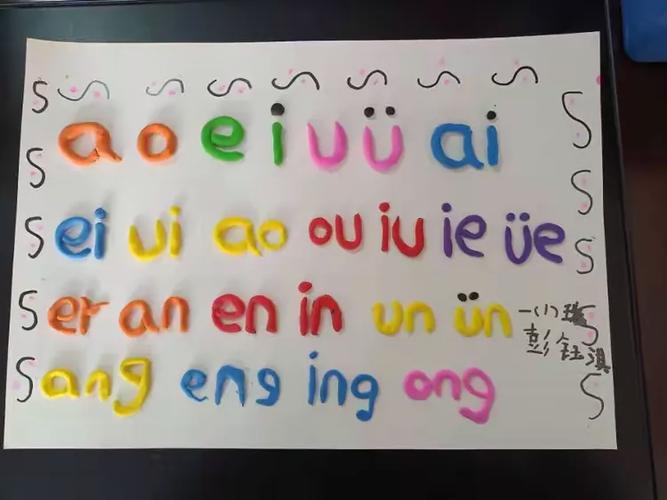 a o e i u ü ai
ei ui ao ou iu ie üe
er an en in un ün
ang eng ing ong
一(1)班
彭钰淇